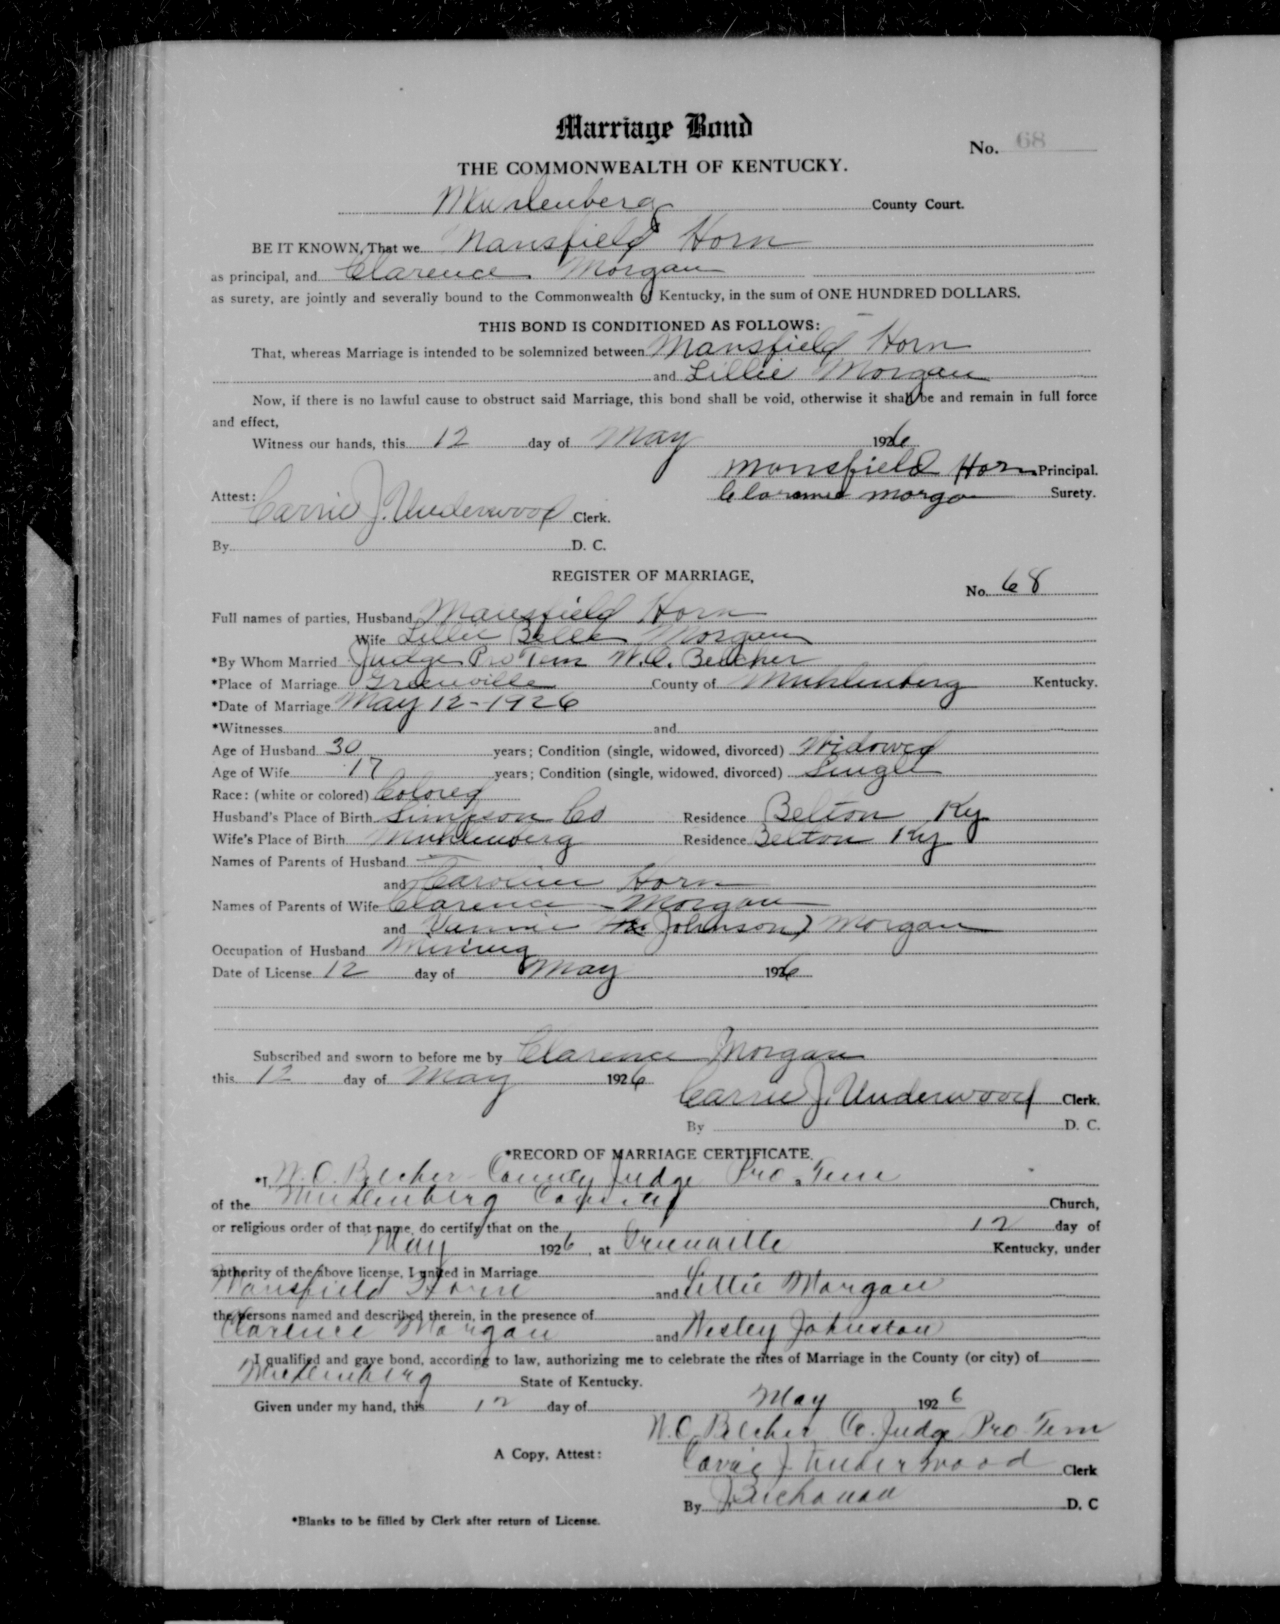 Marriage Bond
No. 68
THE COMMONWEALTH OF KENTUCKY.
Muhlenberg County Court.
BE IT KNOWN, That we Mansfield Horn
as principal, and Clarence Morgan
as surety, are jointly and severally bound to the Commonwealth of Kentucky, in the sum of ONE HUNDRED DOLLARS.
THIS BOND IS CONDITIONED AS FOLLOWS:
That, whereas Marriage is intended to be solemnized between Mansfield Horn
and Lillie Morgan
Now, if there is no lawful cause to obstruct said Marriage, this bond shall be void, otherwise it shall be and remain in full force
and effect,
Witness our hands, this 12 day of May 1926
Mansfield Horn Principal.
Attest: Clarence Morgan Surety.
Carrie J. Underwood Clerk.
By D. C.
REGISTER OF MARRIAGE,
No. 68
Full names of parties, Husband Mansfield Horn
Wife Lillie Belle Morgan
*By Whom Married Judge Pro Tem W. O. Belcher
*Place of Marriage Greenville County of Muhlenberg Kentucky.
*Date of Marriage May 12-1926
*Witnesses and
Age of Husband 30 years; Condition (single, widowed, divorced) Widowed
Age of Wife 17 years; Condition (single, widowed, divorced) Single
Race: (white or colored) Colored
Husband's Place of Birth Simpson Co Residence Belton Ky
Wife's Place of Birth Muhlenberg Residence Belton Ky
Names of Parents of Husband
and Caroline Horn
Names of Parents of Wife Clarence Morgan
and Johnson) Morgan
Occupation of Husband Mining
Date of License 12 day of May 1926
Subscribed and sworn to before me by Clarence Morgan
this 12 day of May 1926
Carrie J. Underwood Clerk.
By D. C.
*RECORD OF MARRIAGE CERTIFICATE.
*I, W. O. Belcher County Judge Pro. Tem
of the Muhlenberg County Church,
or religious order of that name, do certify that on the 12 day of
May 1926, at Greenville Kentucky, under
authority of the above license, I united in Marriage
Mansfield Horn and Lillie Morgan
the persons named and described therein, in the presence of
Clarence Morgan and Wesley Johnston
I qualified and gave bond, according to law, authorizing me to celebrate the rites of Marriage in the County (or city) of
Muhlenberg State of Kentucky.
Given under my hand, this 12 day of May 1926
W. O. Belcher Co. Judge Pro Tem
A Copy, Attest:
Carrie J Underwood Clerk
By J Buchanan D. C
*Blanks to be filled by Clerk after return of License.